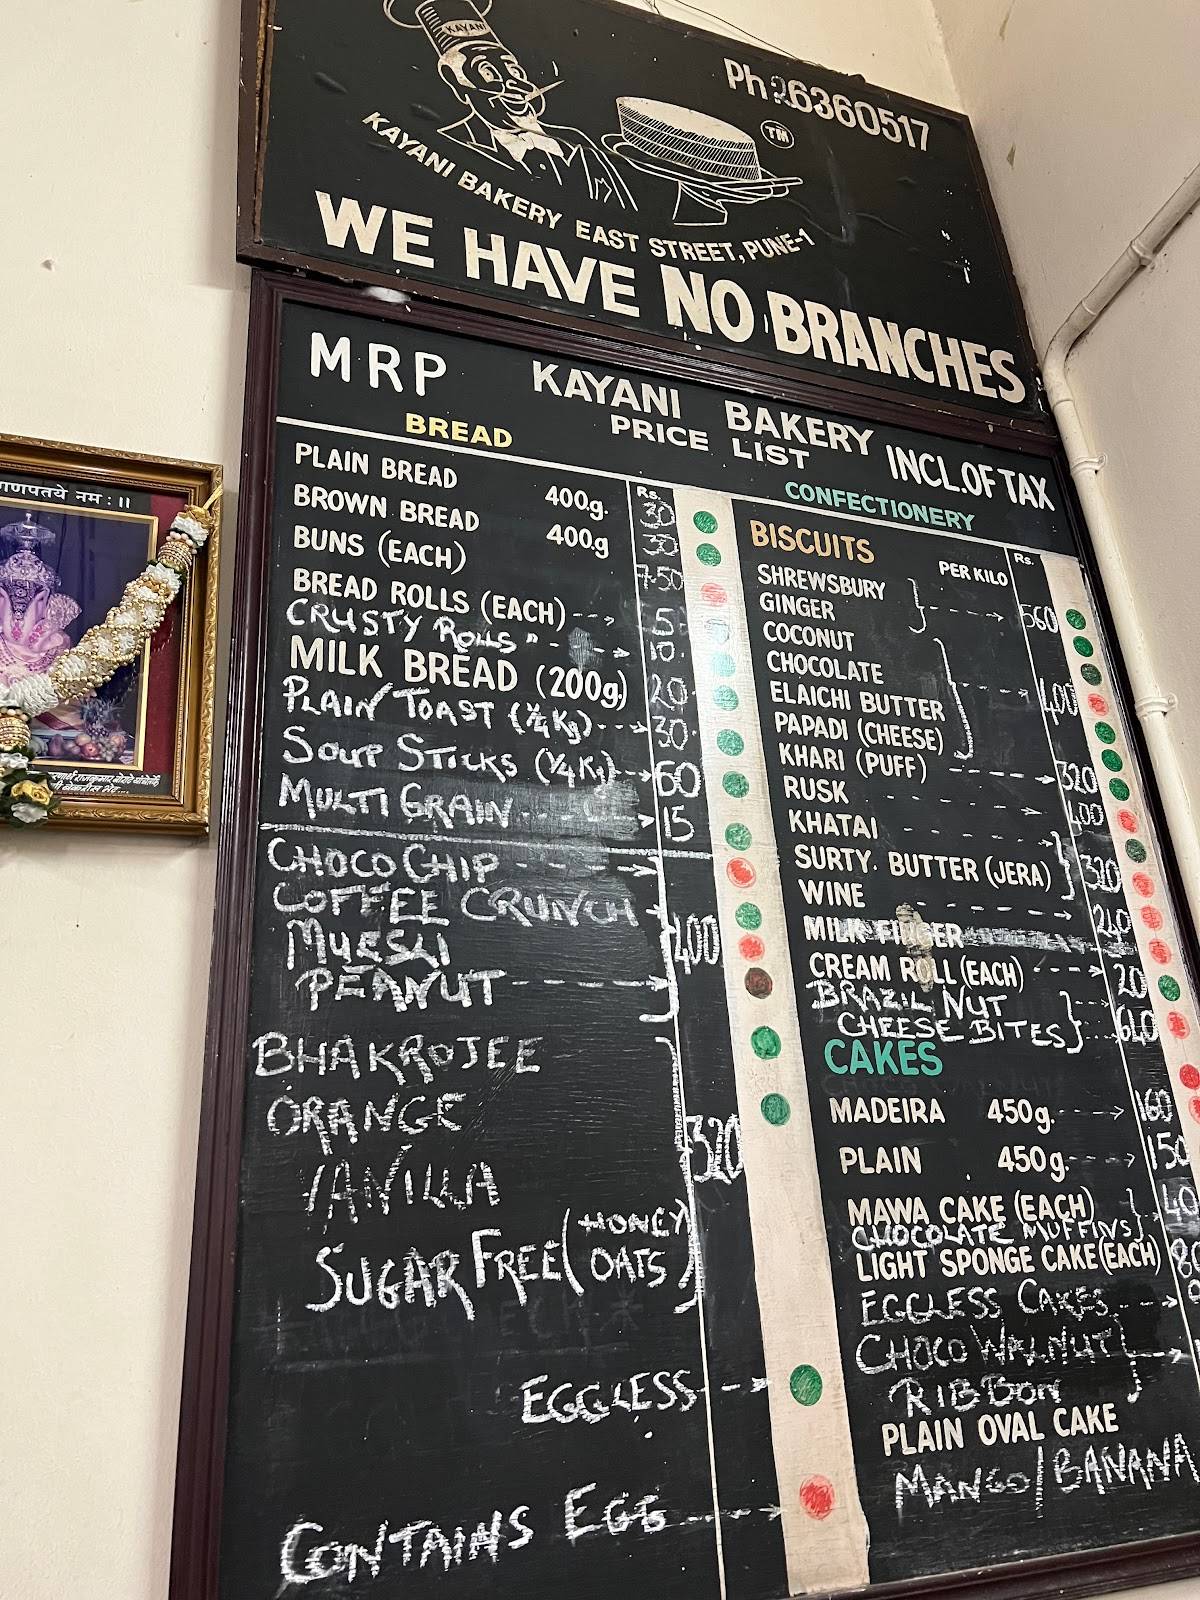 KAYANI
Ph:26360517
TM
KAYANI BAKERY EAST STREET, PUNE-1
WE HAVE NO BRANCHES
MRP KAYANI BAKERY INCL.OF TAX
PRICE LIST
BREAD
Rs.
PLAIN BREAD 400g. 30
BROWN BREAD 400g 30
BUNS (EACH) 7.50
BREAD ROLLS (EACH) 5
CRUSTY ROLLS " 10
MILK BREAD (200g) 20
PLAIN TOAST (¼Kg) 30
SOUP STICKS (¼Kg) 60
MULTI GRAIN 15
CHOCO CHIP
COFFEE CRUNCH
MUESLI
PEANUT
400
BHAKROJEE
ORANGE
VANILLA
SUGAR FREE (HONEY
OATS)
320
EGGLESS
CONTAINS EGG
CONFECTIONERY
BISCUITS PER KILO Rs.
SHREWSBURY
GINGER
560
COCONUT
CHOCOLATE
ELAICHI BUTTER
PAPADI (CHEESE)
400
KHARI (PUFF) 320
RUSK 400
KHATAI
SURTY. BUTTER (JERA)
320
WINE 240
MILK FINGER
CREAM ROLL (EACH) 20
BRAZIL NUT
CHEESE BITES
640
CAKES
MADEIRA 450g. 160
PLAIN 450g. 150
MAWA CAKE (EACH)
CHOCOLATE MUFFINS
40
LIGHT SPONGE CAKE (EACH)
EGGLESS CAKES
CHOCO WALNUT
RIBBON
PLAIN OVAL CAKE
MANGO/BANANA
गणपतये नमः ॥